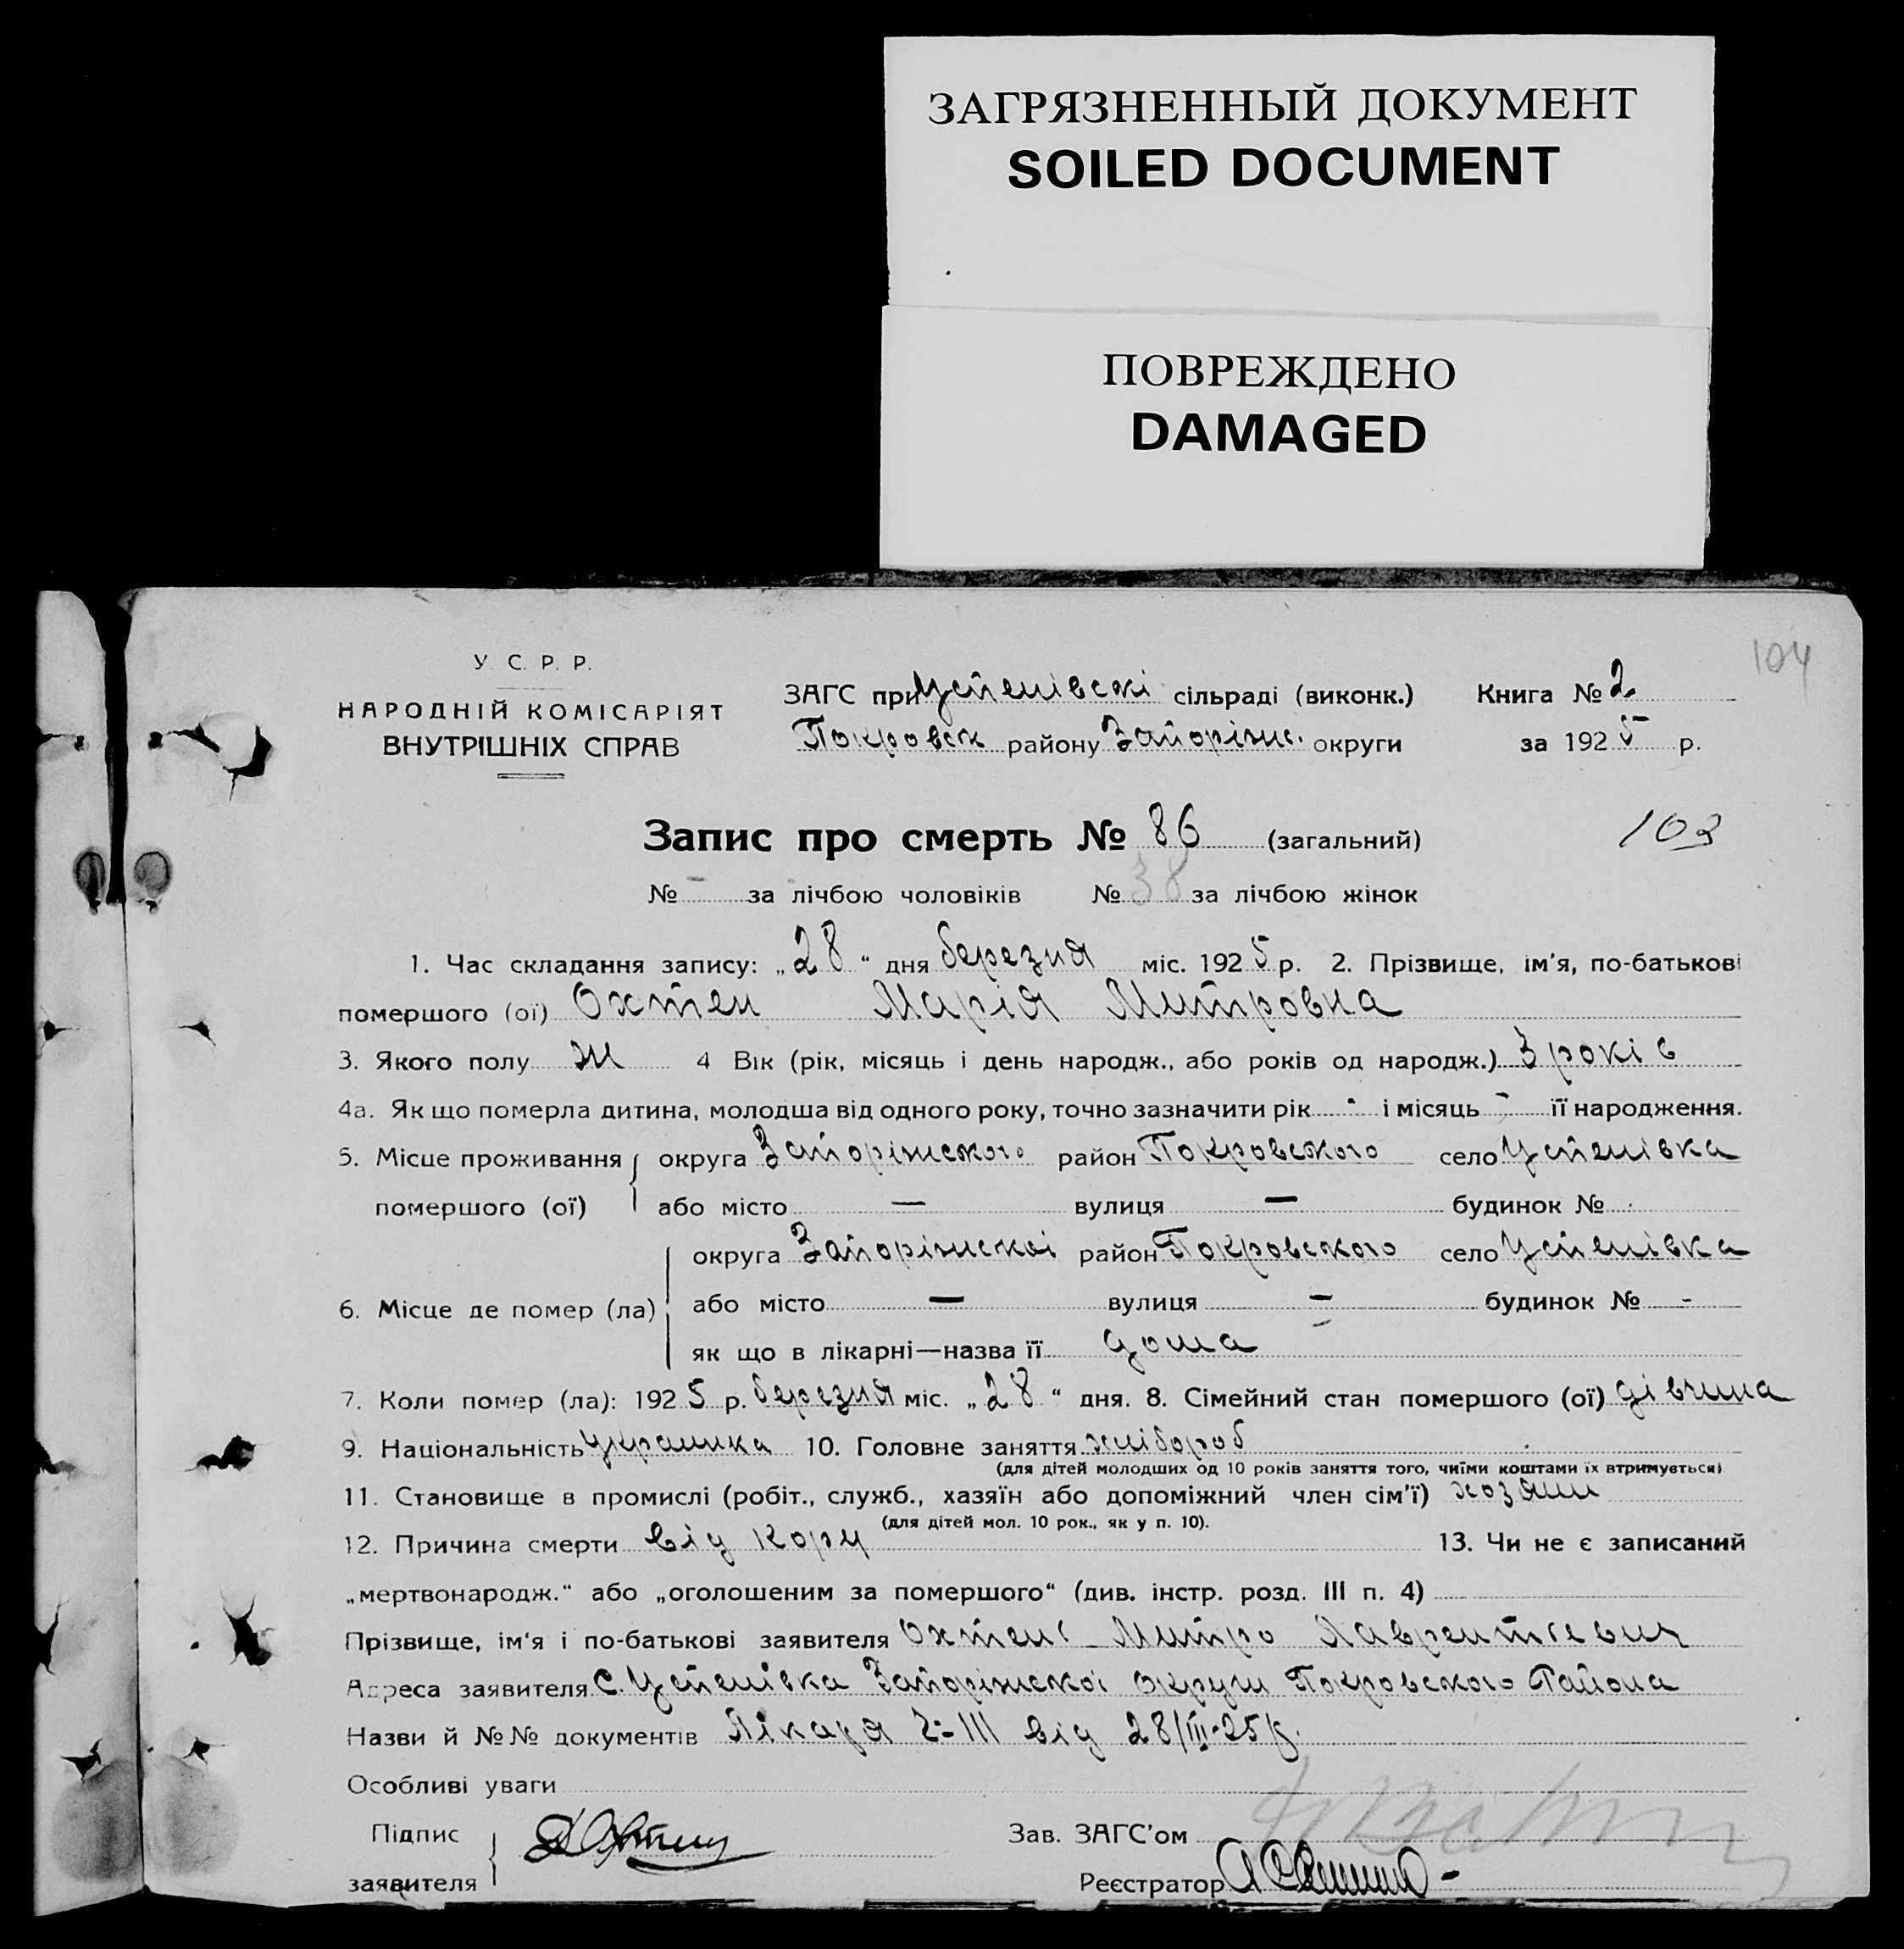 ЗАГРЯЗНЕННЫЙ ДОКУМЕНТ
SOILED DOCUMENT
ПОВРЕЖДЕНО
DAMAGED
104
У. С. Р. Р.
НАРОДНІЙ КОМІСАРІЯТ
ВНУТРІШНІХ СПРАВ
ЗАГС при Успенівскі сільраді (виконк.) Книга № 2
Покровск району Запоріжс. округи за 1925 р.
Запис про смерть № 86 (загальний) 103
№ - за лічбою чоловіків № 38 за лічбою жінок
1. Час складання запису: „28“ дня березня міс. 1925 р. 2. Прізвище, ім'я, по-батькові
помершого (ої) Охтен Марія Митровна
3. Якого полу Ж 4 Вік (рік, місяць і день народж., або років од народж.) 3 років
4а. Як що померла дитина, молодша від одного року, точно зазначити рік - і місяць - її народження.
5. Місце проживання помершого (ої) округа Запоріжского район Покровского село Успенівка
або місто — вулиця — будинок №
6. Місце де помер (ла) округа Запоріжскоі район Покровского село Успенівка
або місто — вулиця — будинок № -
як що в лікарні—назва її дома
7. Коли помер (ла): 1925 р. березня міс. „28“ дня. 8. Сімейний стан помершого (ої) дівчина
9. Національність Украинка 10. Головне заняття хлібороб
(для дітей молодших од 10 років заняття того, чиїми коштами їх втримується)
11. Становище в промислі (робіт., служб., хазяїн або допоміжний член сім'ї) хозяин
(для дітей мол. 10 рок., як у п. 10).
12. Причина смерти від кору 13. Чи не є записаний
„мертвонародж.“ або „оголошеним за помершого“ (див. інстр. розд. III п. 4)
Прізвище, ім'я і по-батькові заявителя Митро Лаврентиевич
Адреса заявителя С. Успенівка Запоріжскоі округи Покровского Района
Назви й №№ документів Лікаря від 28/III-25 р.
Особливі уваги
Підпис заявителя
Зав. ЗАГС'ом
Реєстратор